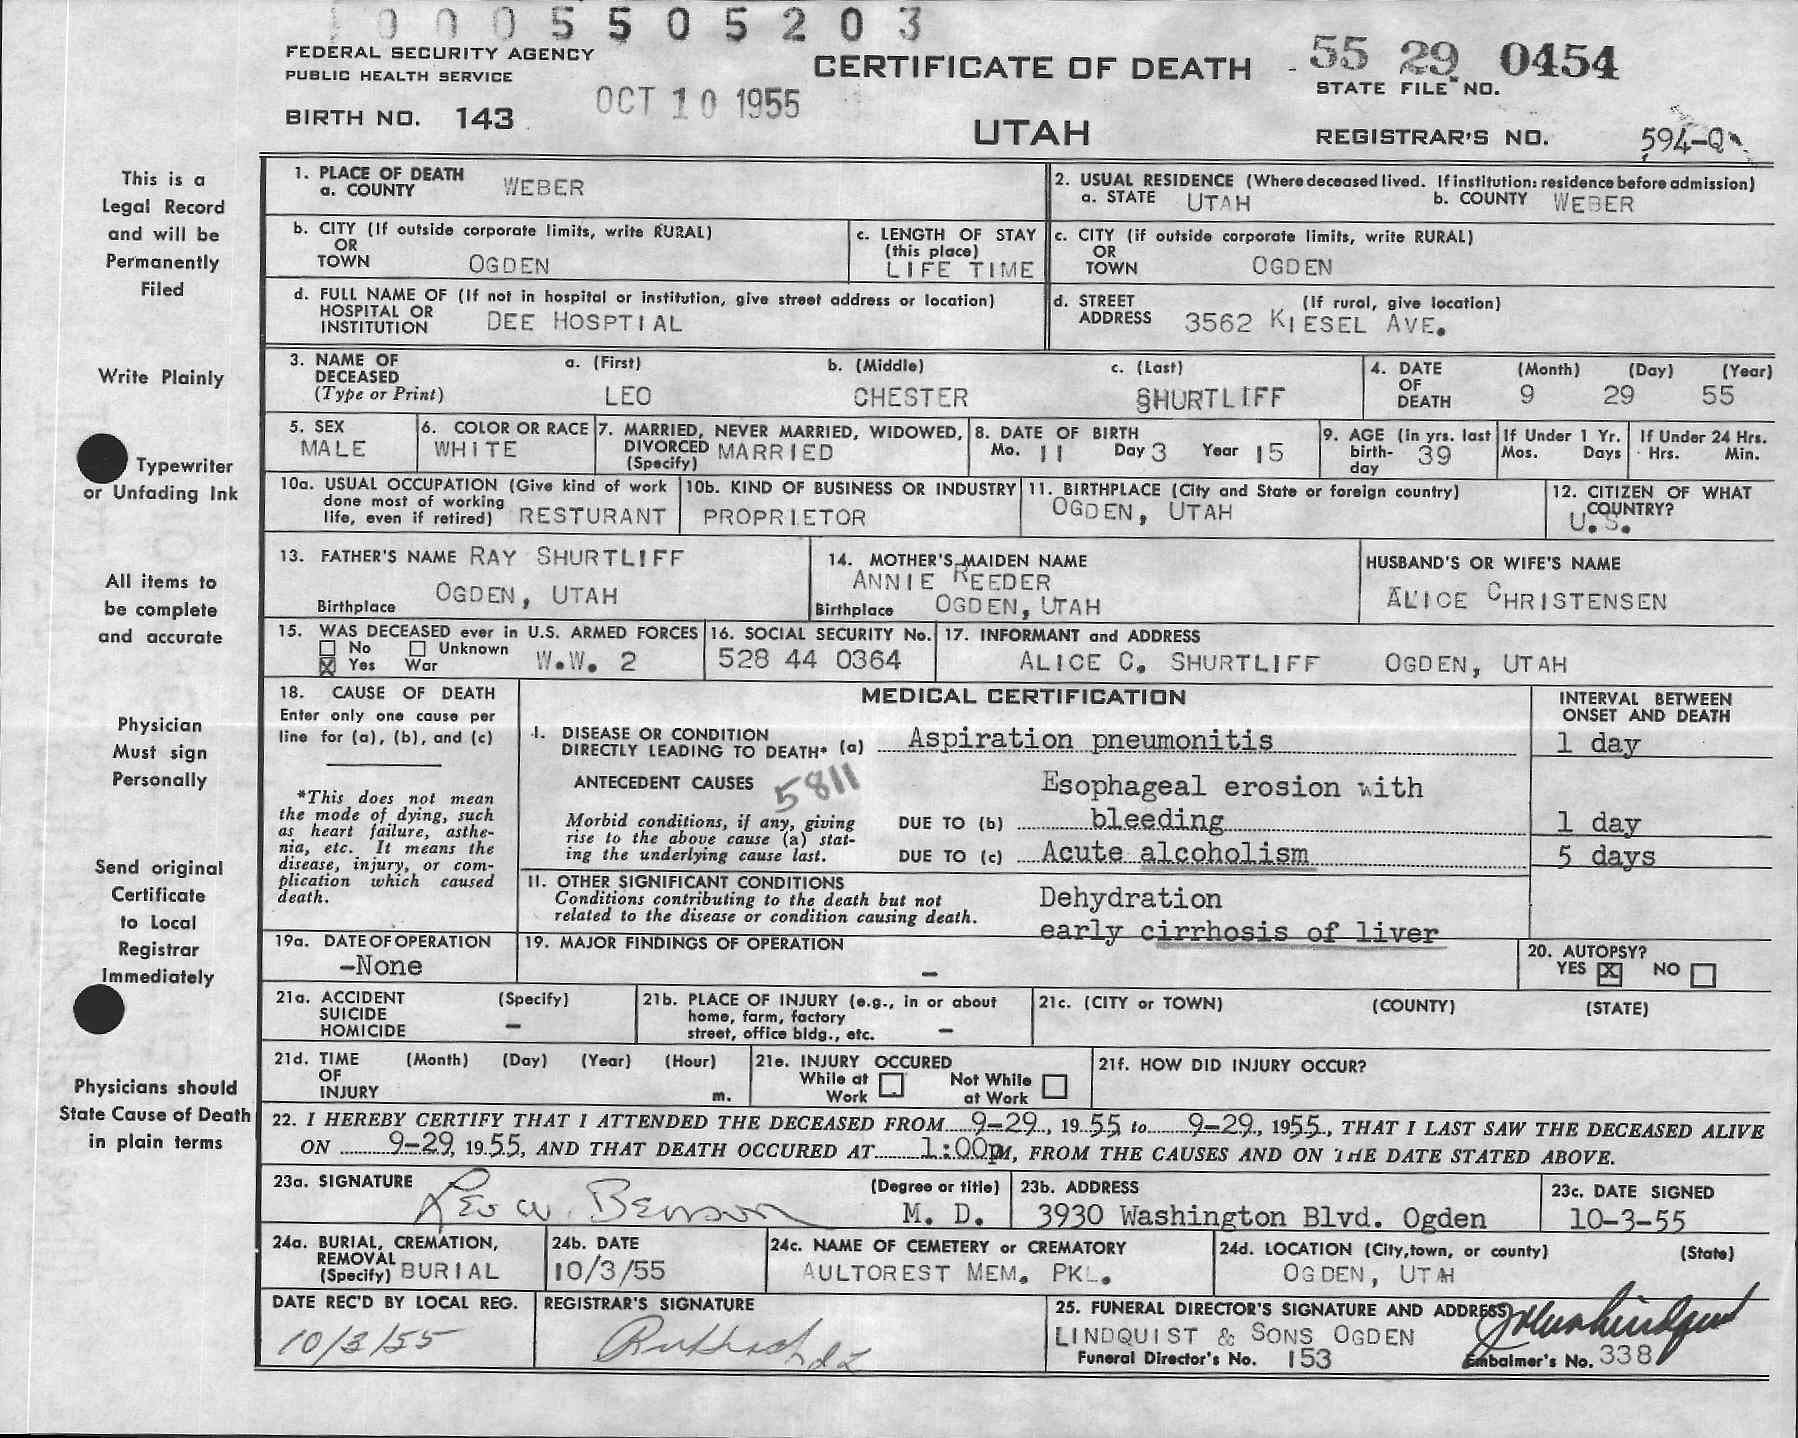 0005505203
FEDERAL SECURITY AGENCY
PUBLIC HEALTH SERVICE
CERTIFICATE OF DEATH
55 29 0454
STATE FILE NO.
BIRTH NO. 143
OCT 10 1955
UTAH
REGISTRAR'S NO. 594-Q
This is a
Legal Record
and will be
Permanently
Filed
Write Plainly
Typewriter
or Unfading Ink
All items to
be complete
and accurate
Physician
Must sign
Personally
Send original
Certificate
to Local
Registrar
Immediately
Physicians should
State Cause of Death
in plain terms
1. PLACE OF DEATH
a. COUNTY WEBER
2. USUAL RESIDENCE (Where deceased lived. If institution: residence before admission)
a. STATE UTAH b. COUNTY WEBER
b. CITY (If outside corporate limits, write RURAL)
OR
TOWN OGDEN
c. LENGTH OF STAY
(this place)
LIFE TIME
c. CITY (if outside corporate limits, write RURAL)
OR
TOWN OGDEN
d. FULL NAME OF (If not in hospital or institution, give street address or location)
HOSPITAL OR
INSTITUTION DEE HOSPTIAL
d. STREET (If rural, give location)
ADDRESS 3562 KIESEL AVE.
3. NAME OF a. (First) b. (Middle) c. (Last)
DECEASED
(Type or Print) LEO CHESTER SHURTLIFF
4. DATE (Month) (Day) (Year)
OF
DEATH 9 29 55
5. SEX
MALE
6. COLOR OR RACE
WHITE
7. MARRIED, NEVER MARRIED, WIDOWED,
DIVORCED MARRIED
(Specify)
8. DATE OF BIRTH
Mo. 11 Day 3 Year 15
9. AGE (in yrs. last
birth- 39
day
If Under 1 Yr.
Mos. Days
If Under 24 Hrs.
Hrs. Min.
10a. USUAL OCCUPATION (Give kind of work
done most of working
life, even if retired) RESTURANT
10b. KIND OF BUSINESS OR INDUSTRY
PROPRIETOR
11. BIRTHPLACE (City and State or foreign country)
OGDEN, UTAH
12. CITIZEN OF WHAT
COUNTRY?
U.S.
13. FATHER'S NAME RAY SHURTLIFF
OGDEN, UTAH
Birthplace
14. MOTHER'S MAIDEN NAME
ANNIE REEDER
Birthplace OGDEN, UTAH
HUSBAND'S OR WIFE'S NAME
ALICE CHRISTENSEN
15. WAS DECEASED ever in U.S. ARMED FORCES
No Unknown
Yes War W.W. 2
16. SOCIAL SECURITY No.
528 44 0364
17. INFORMANT and ADDRESS
ALICE C. SHURTLIFF OGDEN, UTAH
18. CAUSE OF DEATH
Enter only one cause per
line for (a), (b), and (c)
*This does not mean
the mode of dying, such
as heart failure, asthe-
nia, etc. It means the
disease, injury, or com-
plication which caused
death.
MEDICAL CERTIFICATION
INTERVAL BETWEEN
ONSET AND DEATH
I. DISEASE OR CONDITION
DIRECTLY LEADING TO DEATH* (a) Aspiration pneumonitis 1 day
ANTECEDENT CAUSES 5811
Esophageal erosion with
Morbid conditions, if any, giving
rise to the above cause (a) stat-
ing the underlying cause last.
DUE TO (b) bleeding 1 day
DUE TO (c) Acute alcoholism 5 days
II. OTHER SIGNIFICANT CONDITIONS
Conditions contributing to the death but not
related to the disease or condition causing death.
Dehydration
early cirrhosis of liver
19a. DATE OF OPERATION
-None
19. MAJOR FINDINGS OF OPERATION
-
20. AUTOPSY?
YES X NO
21a. ACCIDENT (Specify)
SUICIDE
HOMICIDE -
21b. PLACE OF INJURY (e.g., in or about
home, farm, factory
street, office bldg., etc. -
21c. (CITY or TOWN) (COUNTY) (STATE)
21d. TIME (Month) (Day) (Year) (Hour)
OF
INJURY m.
21e. INJURY OCCURED
While at Work Not While at Work
21f. HOW DID INJURY OCCUR?
22. I HEREBY CERTIFY THAT I ATTENDED THE DECEASED FROM 9-29, 1955 to 9-29, 1955, THAT I LAST SAW THE DECEASED ALIVE
ON 9-29, 1955, AND THAT DEATH OCCURED AT 1:00pM, FROM THE CAUSES AND ON THE DATE STATED ABOVE.
23a. SIGNATURE (Degree or title)
Leo W. Benson M. D.
23b. ADDRESS
3930 Washington Blvd. Ogden
23c. DATE SIGNED
10-3-55
24a. BURIAL, CREMATION,
REMOVAL
(Specify) BURIAL
24b. DATE
10/3/55
24c. NAME OF CEMETERY or CREMATORY
AULTOREST MEM. PKL.
24d. LOCATION (City, town, or county) (State)
OGDEN, UTAH
DATE REC'D BY LOCAL REG.
10/3/55
REGISTRAR'S SIGNATURE
25. FUNERAL DIRECTOR'S SIGNATURE AND ADDRESS
LINDQUIST & SONS OGDEN
Funeral Director's No. 153 Embalmer's No. 338